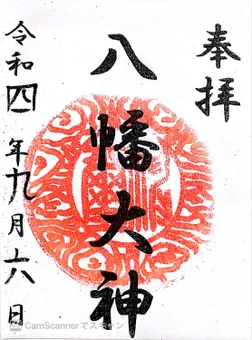 奉拝
八幡大神
令和四年九月十六日
CamScannerでスキャン